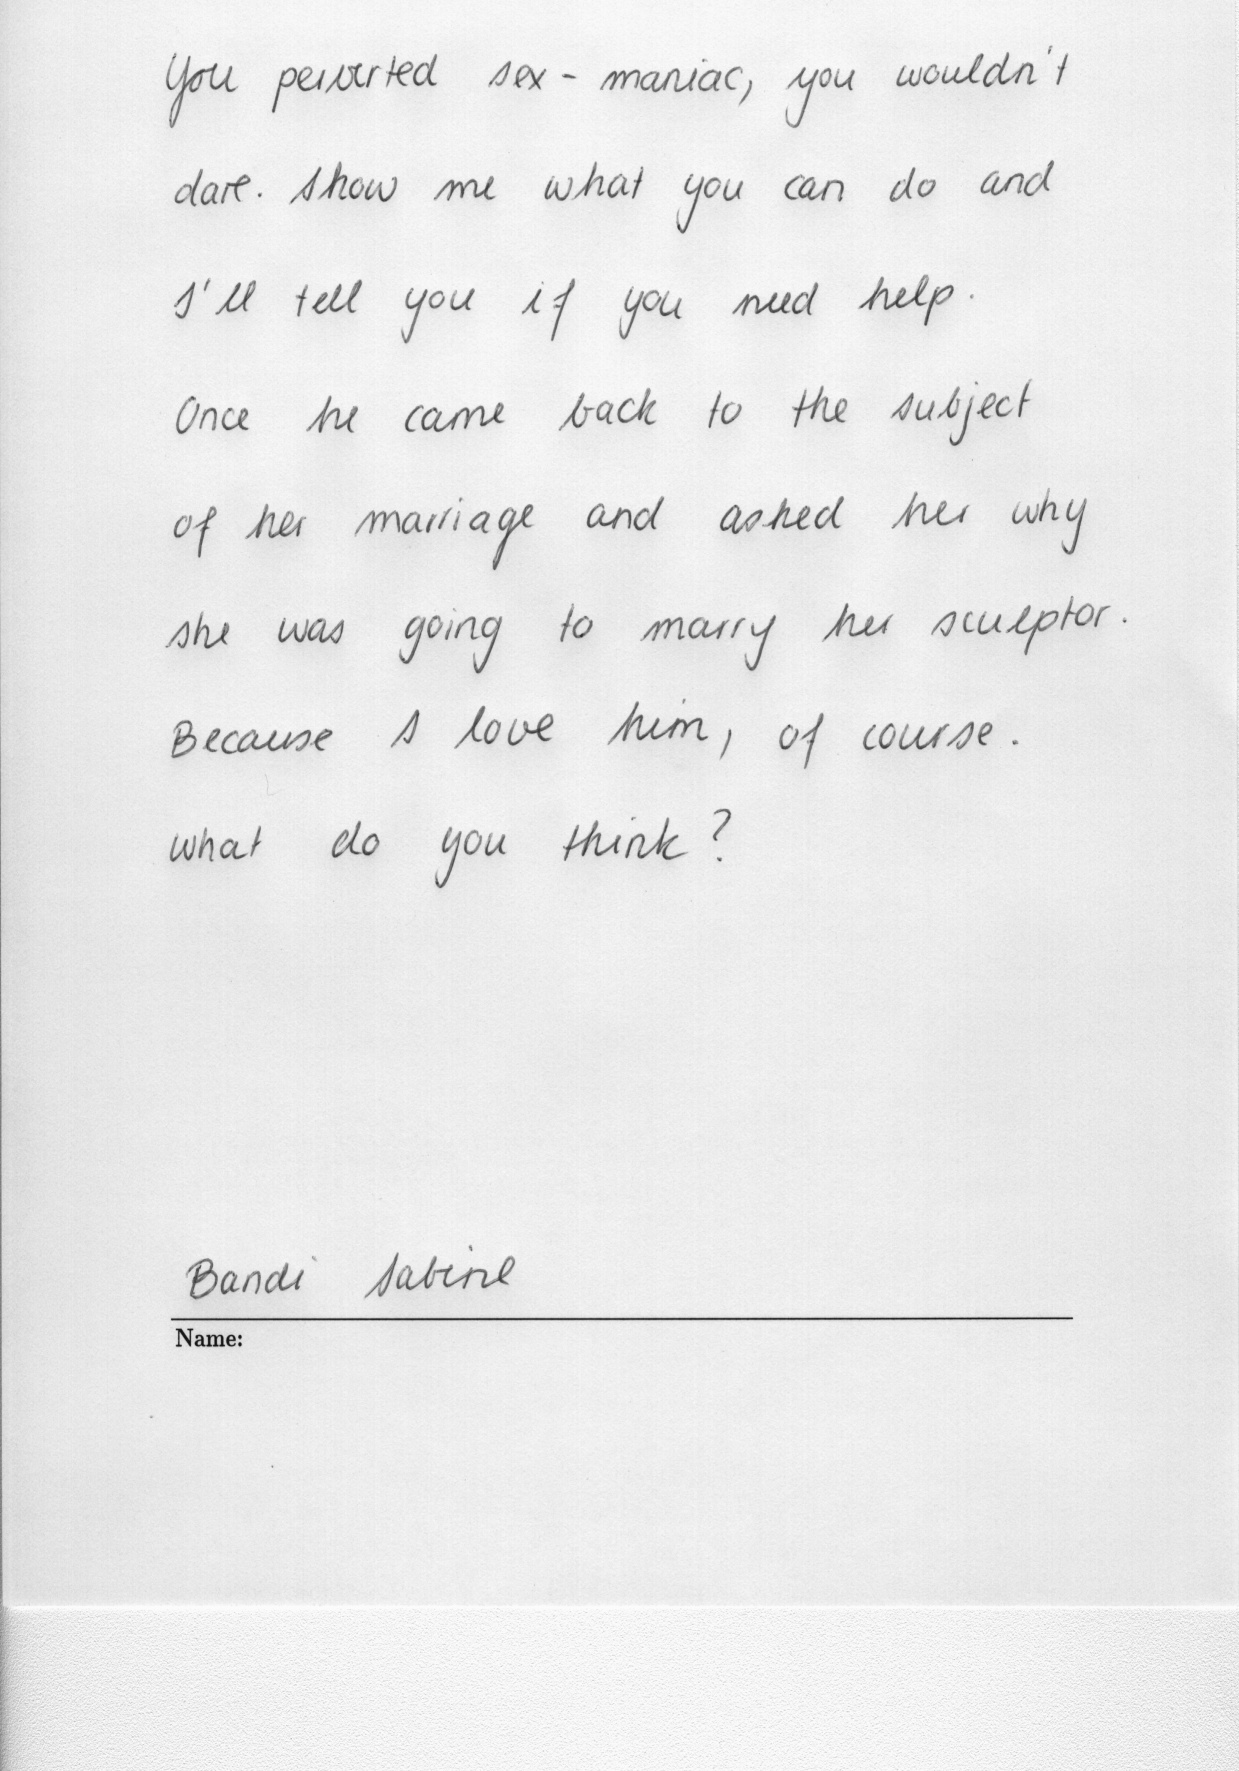 You perverted sex-maniac, you wouldn't
dare. Show me what you can do and
I'll tell you if you need help.
Once he came back to the subject
of her marriage and asked her why
she was going to marry her sculptor.
Because I love him, of course.
What do you think?
Bandi Sabine
Name: